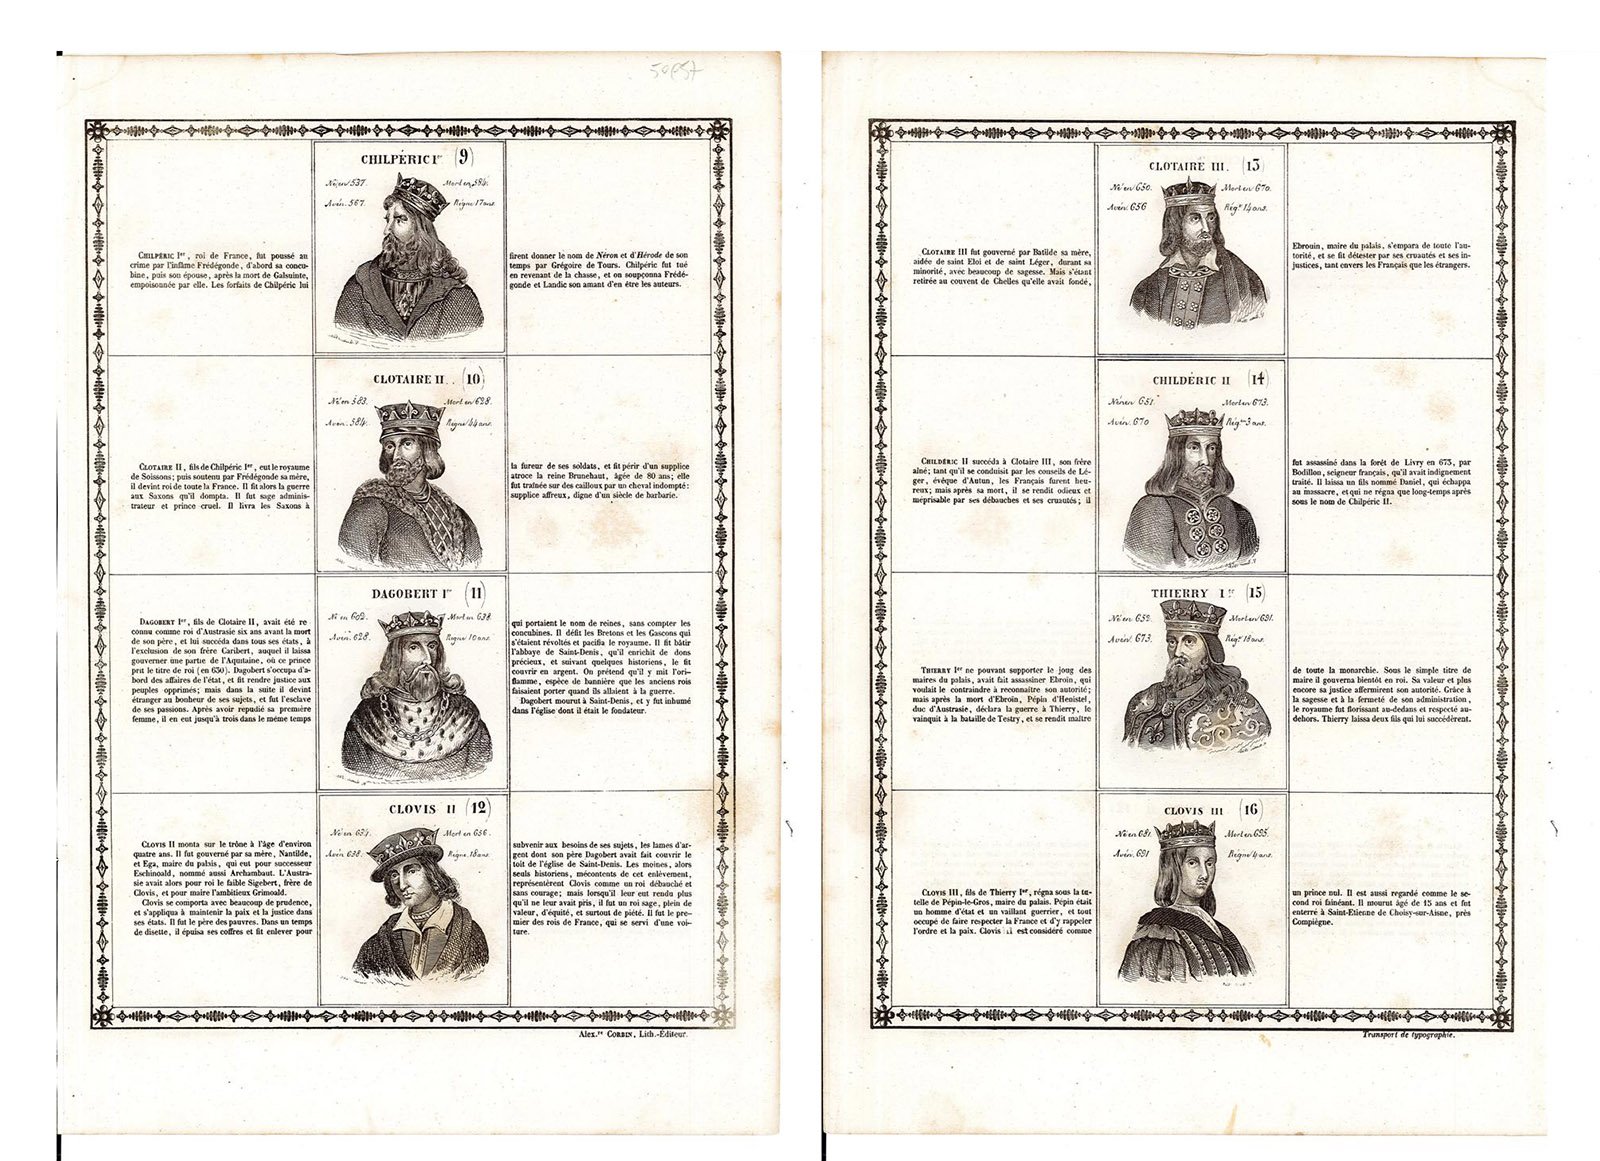 50857
CHILPÉRIC Ier (9)
Né en 537. Mort en 584.
Avén. 567. Règne 17 ans.
CHILPÉRIC Ier, roi de France, fut poussé au
crime par l'infâme Frédégonde, d'abord sa concu-
bine, puis son épouse, après la mort de Galsuinte,
empoisonnée par elle. Les forfaits de Chilpéric lui
firent donner le nom de Néron et d'Hérode de son
temps par Grégoire de Tours. Chilpéric fut tué
en revenant de la chasse, et on soupçonna Frédé-
gonde et Landic son amant d'en être les auteurs.
CLOTAIRE II. (10)
Né en 583. Mort en 628.
Avén. 584. Règne 44 ans.
CLOTAIRE II, fils de Chilpéric Ier, eut le royaume
de Soissons; puis soutenu par Frédégonde sa mère,
il devint roi de toute la France. Il fit alors la guerre
aux Saxons qu'il dompta. Il fut sage adminis-
trateur et prince cruel. Il livra les Saxons à
la fureur de ses soldats, et fit périr d'un supplice
atroce la reine Brunehaut, âgée de 80 ans; elle
fut traînée sur des cailloux par un cheval indompté:
supplice affreux, digne d'un siècle de barbarie.
DAGOBERT Ier (11)
Né en 602. Mort en 638.
Avén. 628. Règne 10 ans.
DAGOBERT Ier, fils de Clotaire II, avait été re
connu comme roi d'Austrasie six ans avant la mort
de son père, et lui succéda dans tous ses états, à
l'exclusion de son frère Caribert, auquel il laissa
gouverner une partie de l'Aquitaine, où ce prince
prit le titre de roi (en 630). Dagobert s'occupa d'a-
bord des affaires de l'état, et fit rendre justice aux
peuples opprimés; mais dans la suite il devint
étranger au bonheur de ses sujets, et fut l'esclave
de ses passions. Après avoir repudié sa première
femme, il en eut jusqu'à trois dans le même temps
qui portaient le nom de reines, sans compter les
concubines. Il défit les Bretons et les Gascons qui
s'étaient révoltés et pacifia le royaume. Il fit bâtir
l'abbaye de Saint-Denis, qu'il enrichit de dons
précieux, et suivant quelques historiens, le fit
couvrir en argent. On prétend qu'il y mit l'ori-
flamme, espèce de bannière que les anciens rois
faisaient porter quand ils allaient à la guerre.
Dagobert mourut à Saint-Denis, et y fut inhumé
dans l'église dont il était le fondateur.
CLOVIS II (12)
Né en 634. Mort en 656.
Avén. 638. Règne. 18 ans.
CLOVIS II monta sur le trône à l'âge d'environ
quatre ans. Il fut gouverné par sa mère, Nantilde,
et Ega, maire du palais, qui eut pour successeur
Eschinoald, nommé aussi Archambaut. L'Austra-
sie avait alors pour roi le faible Sigebert, frère de
Clovis, et pour maire l'ambitieux Grimoald.
Clovis se comporta avec beaucoup de prudence,
et s'appliqua à maintenir la paix et la justice dans
ses états. Il fut le père des pauvres. Dans un temps
de disette, il épuisa ses coffres et fit enlever pour
subvenir aux besoins de ses sujets, les lames d'ar-
gent dont son père Dagobert avait fait couvrir le
toit de l'église de Saint-Denis. Les moines, alors
seuls historiens, mécontents de cet enlèvement,
représentèrent Clovis comme un roi débauché et
sans courage; mais lorsqu'il leur eut rendu plus
qu'il ne leur avait pris, il fut un roi sage, plein de
valeur, d'équité, et surtout de piété. Il fut le pre-
mier des rois de France, qui se servit d'une voi-
ture.
Alex.re CORBIN, Lith.-Éditeur.
CLOTAIRE III. (13)
Né en 650. Mort en 670.
Avén. 656 Règne 14 ans.
CLOTAIRE III fut gouverné par Batilde sa mère,
aidée de saint Eloi et de saint Léger, durant sa
minorité, avec beaucoup de sagesse. Mais s'étant
retirée au couvent de Chelles qu'elle avait fondé,
Ebrouin, maire du palais, s'empara de toute l'au-
torité, et se fit détester par ses cruautés et ses in-
justices, tant envers les Français que les étrangers.
CHILDÉRIC II (14)
Né en 651. Mort en 673.
Avén. 670 Règne 3 ans.
CHILDÉRIC II succéda à Clotaire III, son frère
aîné; tant qu'il se conduisit par les conseils de Lé-
ger, évêque d'Autun, les Français furent heu-
reux; mais après sa mort, il se rendit odieux et
méprisable par ses débauches et ses cruautés; il
fut assassiné dans la forêt de Livry en 673, par
Bodillon, seigneur français, qu'il avait indignement
traité. Il laissa un fils nommé Daniel, qui échappa
au massacre, et qui ne régna que long-temps après
sous le nom de Chilpéric II.
THIERRY Ier (15)
Né en 652. Mort en 691.
Avén. 673. Règne 18 ans.
THIERRY Ier ne pouvant supporter le joug des
maires du palais, avait fait assassiner Ebroin, qui
voulait le contraindre à reconnaître son autorité;
mais après la mort d'Ebroin, Pépin d'Henistel,
duc d'Austrasie, déclara la guerre à Thierry, le
vainquit à la bataille de Testry, et se rendit maître
de toute la monarchie. Sous le simple titre de
maire il gouverna bientôt en roi. Sa valeur et plus
encore sa justice affermirent son autorité. Grâce à
la sagesse et à la fermeté de son administration,
le royaume fut florissant au-dedans et respecté au-
dehors. Thierry laissa deux fils qui lui succédèrent.
CLOVIS III (16)
Né en 681. Mort en 695.
Avén. 691 Règne 4 ans.
CLOVIS III, fils de Thierry Ier, régna sous la tu-
telle de Pépin-le-Gros, maire du palais. Pépin était
un homme d'état et un vaillant guerrier, et tout
occupé de faire respecter la France et d'y rappeler
l'ordre et la paix. Clovis II est considéré comme
un prince nul. Il est aussi regardé comme le se-
cond roi fainéant. Il mourut âgé de 15 ans et fut
enterré à Saint-Etienne de Choisy-sur-Aisne, près
Compiègne.
Transport de typographie.